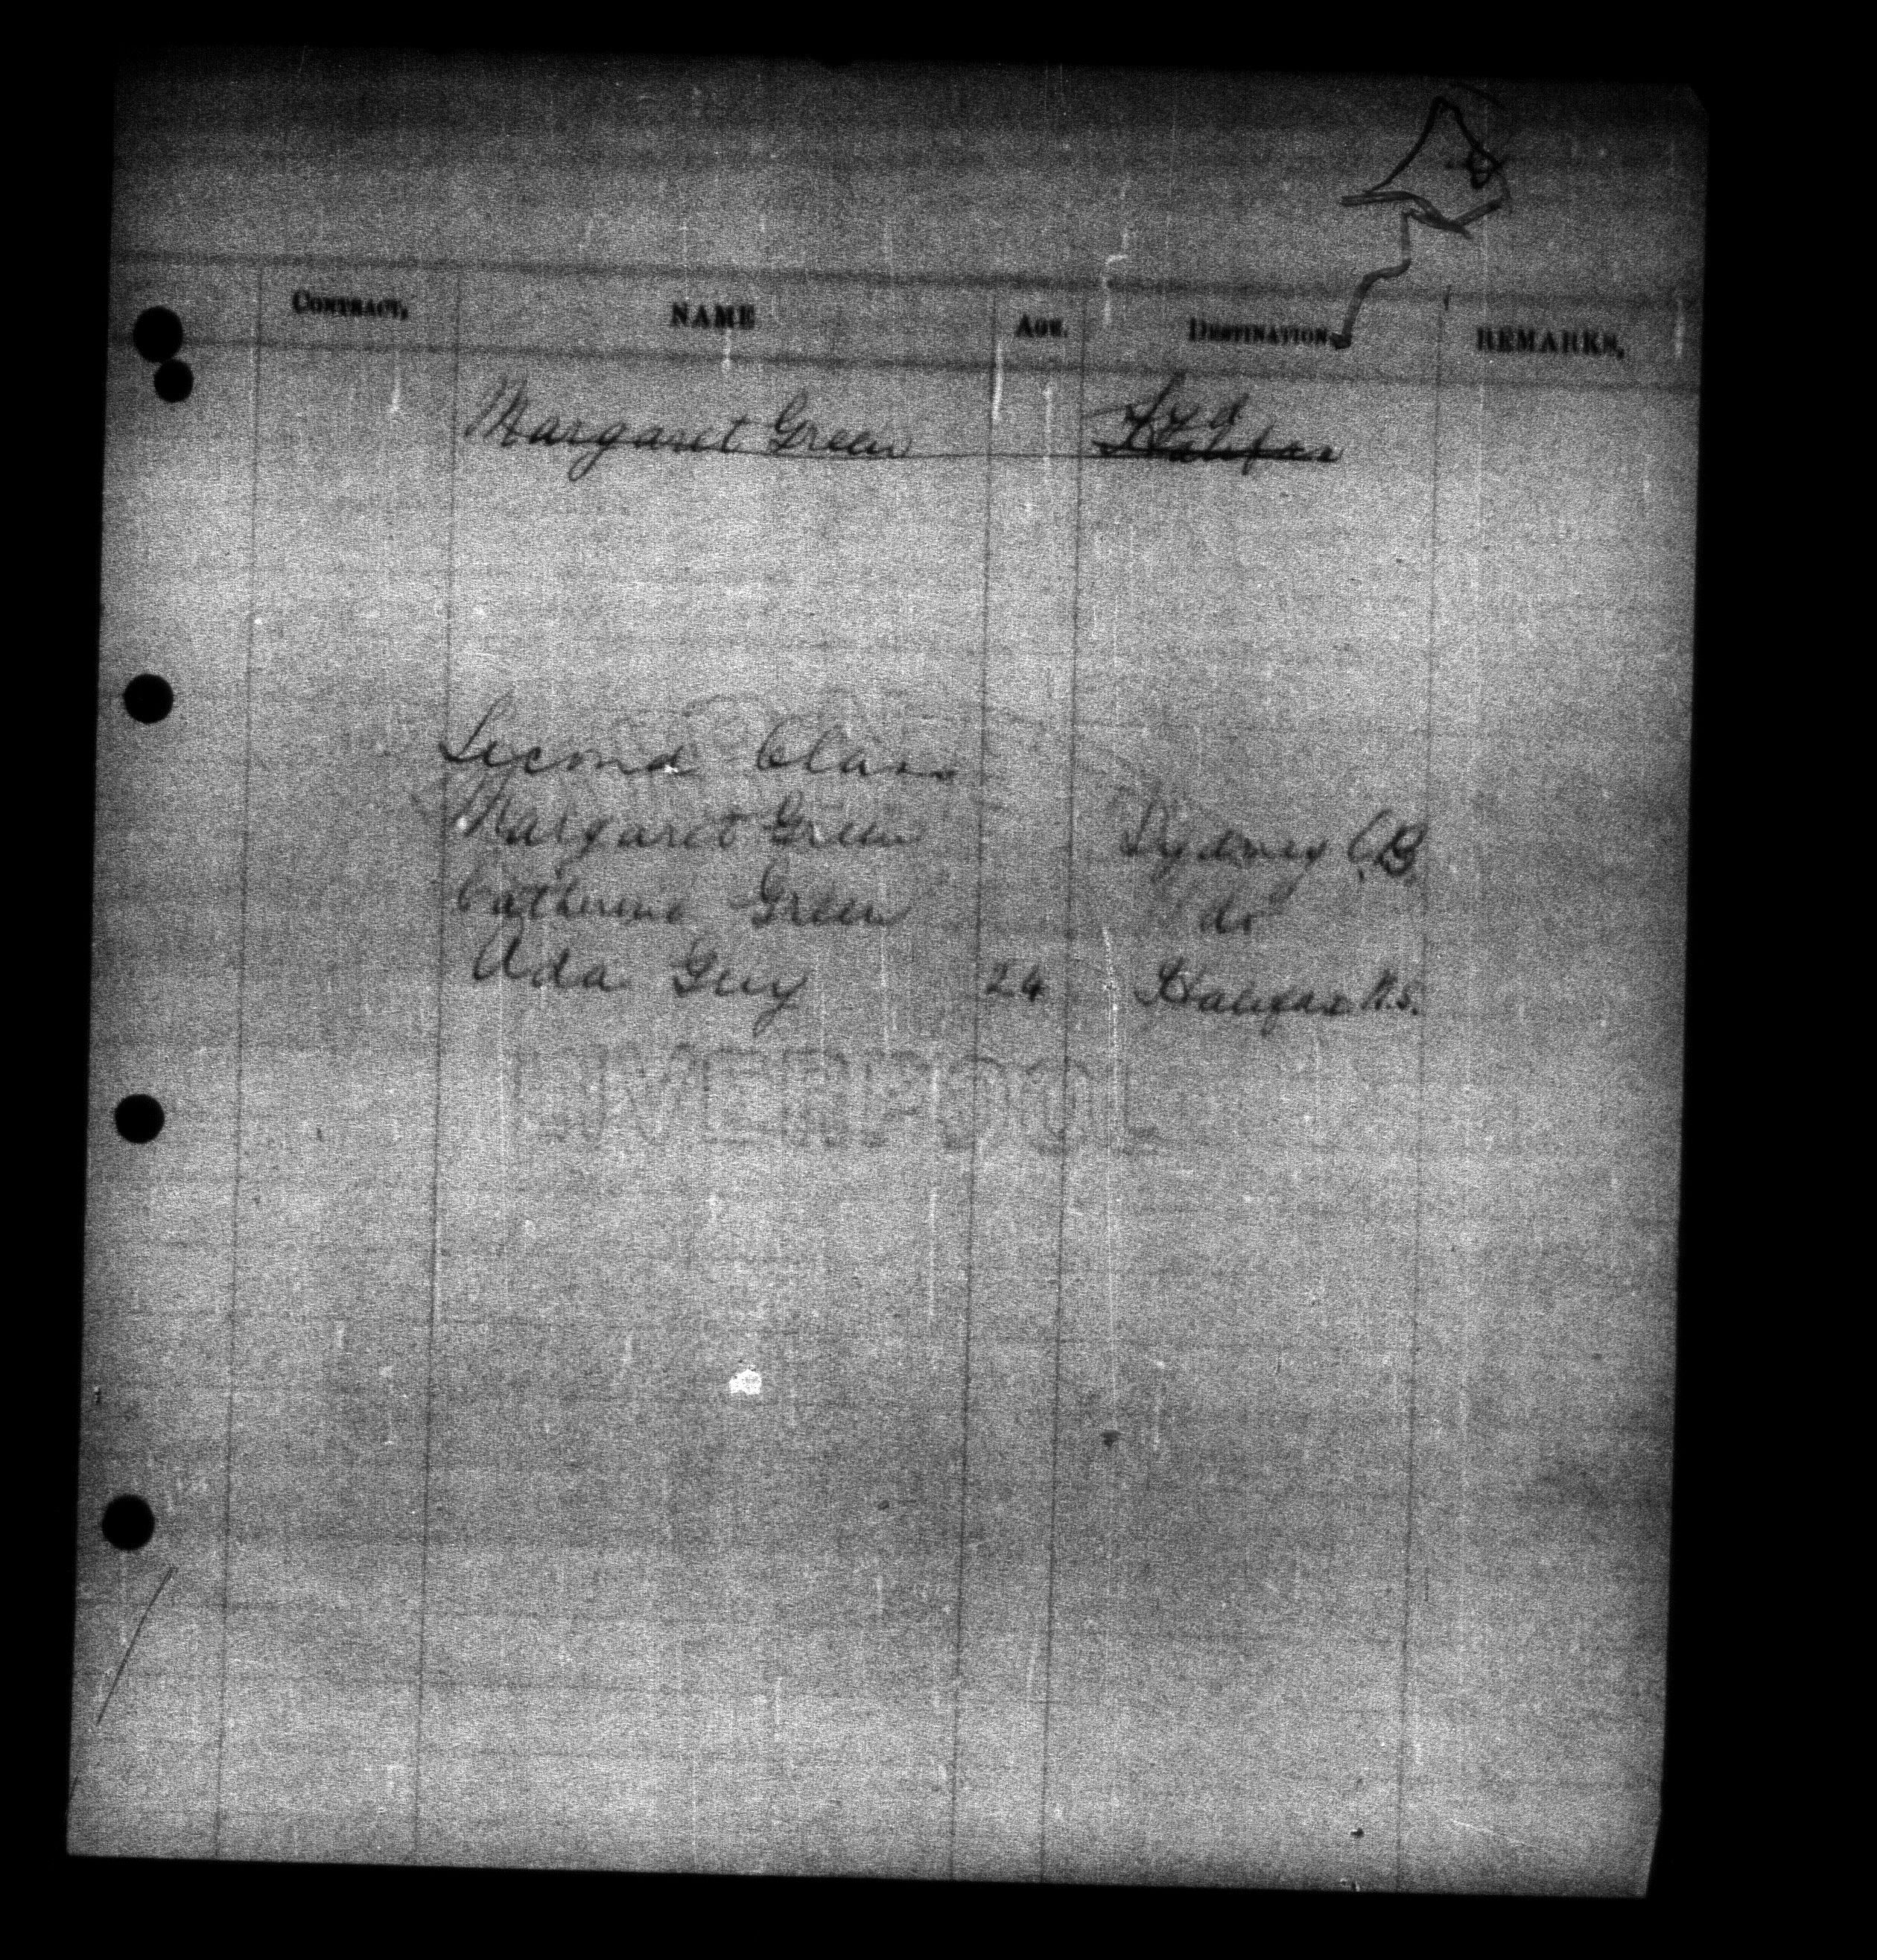 CONTRACT, NAME AGE. DESTINATION REMARKS,
Syd
Margaret Green Halifax
Second Class
Margaret Green Sydney C.B.
Catherine Green do
Ada Guy 24 Halifax N.S.
LIVERPOOL